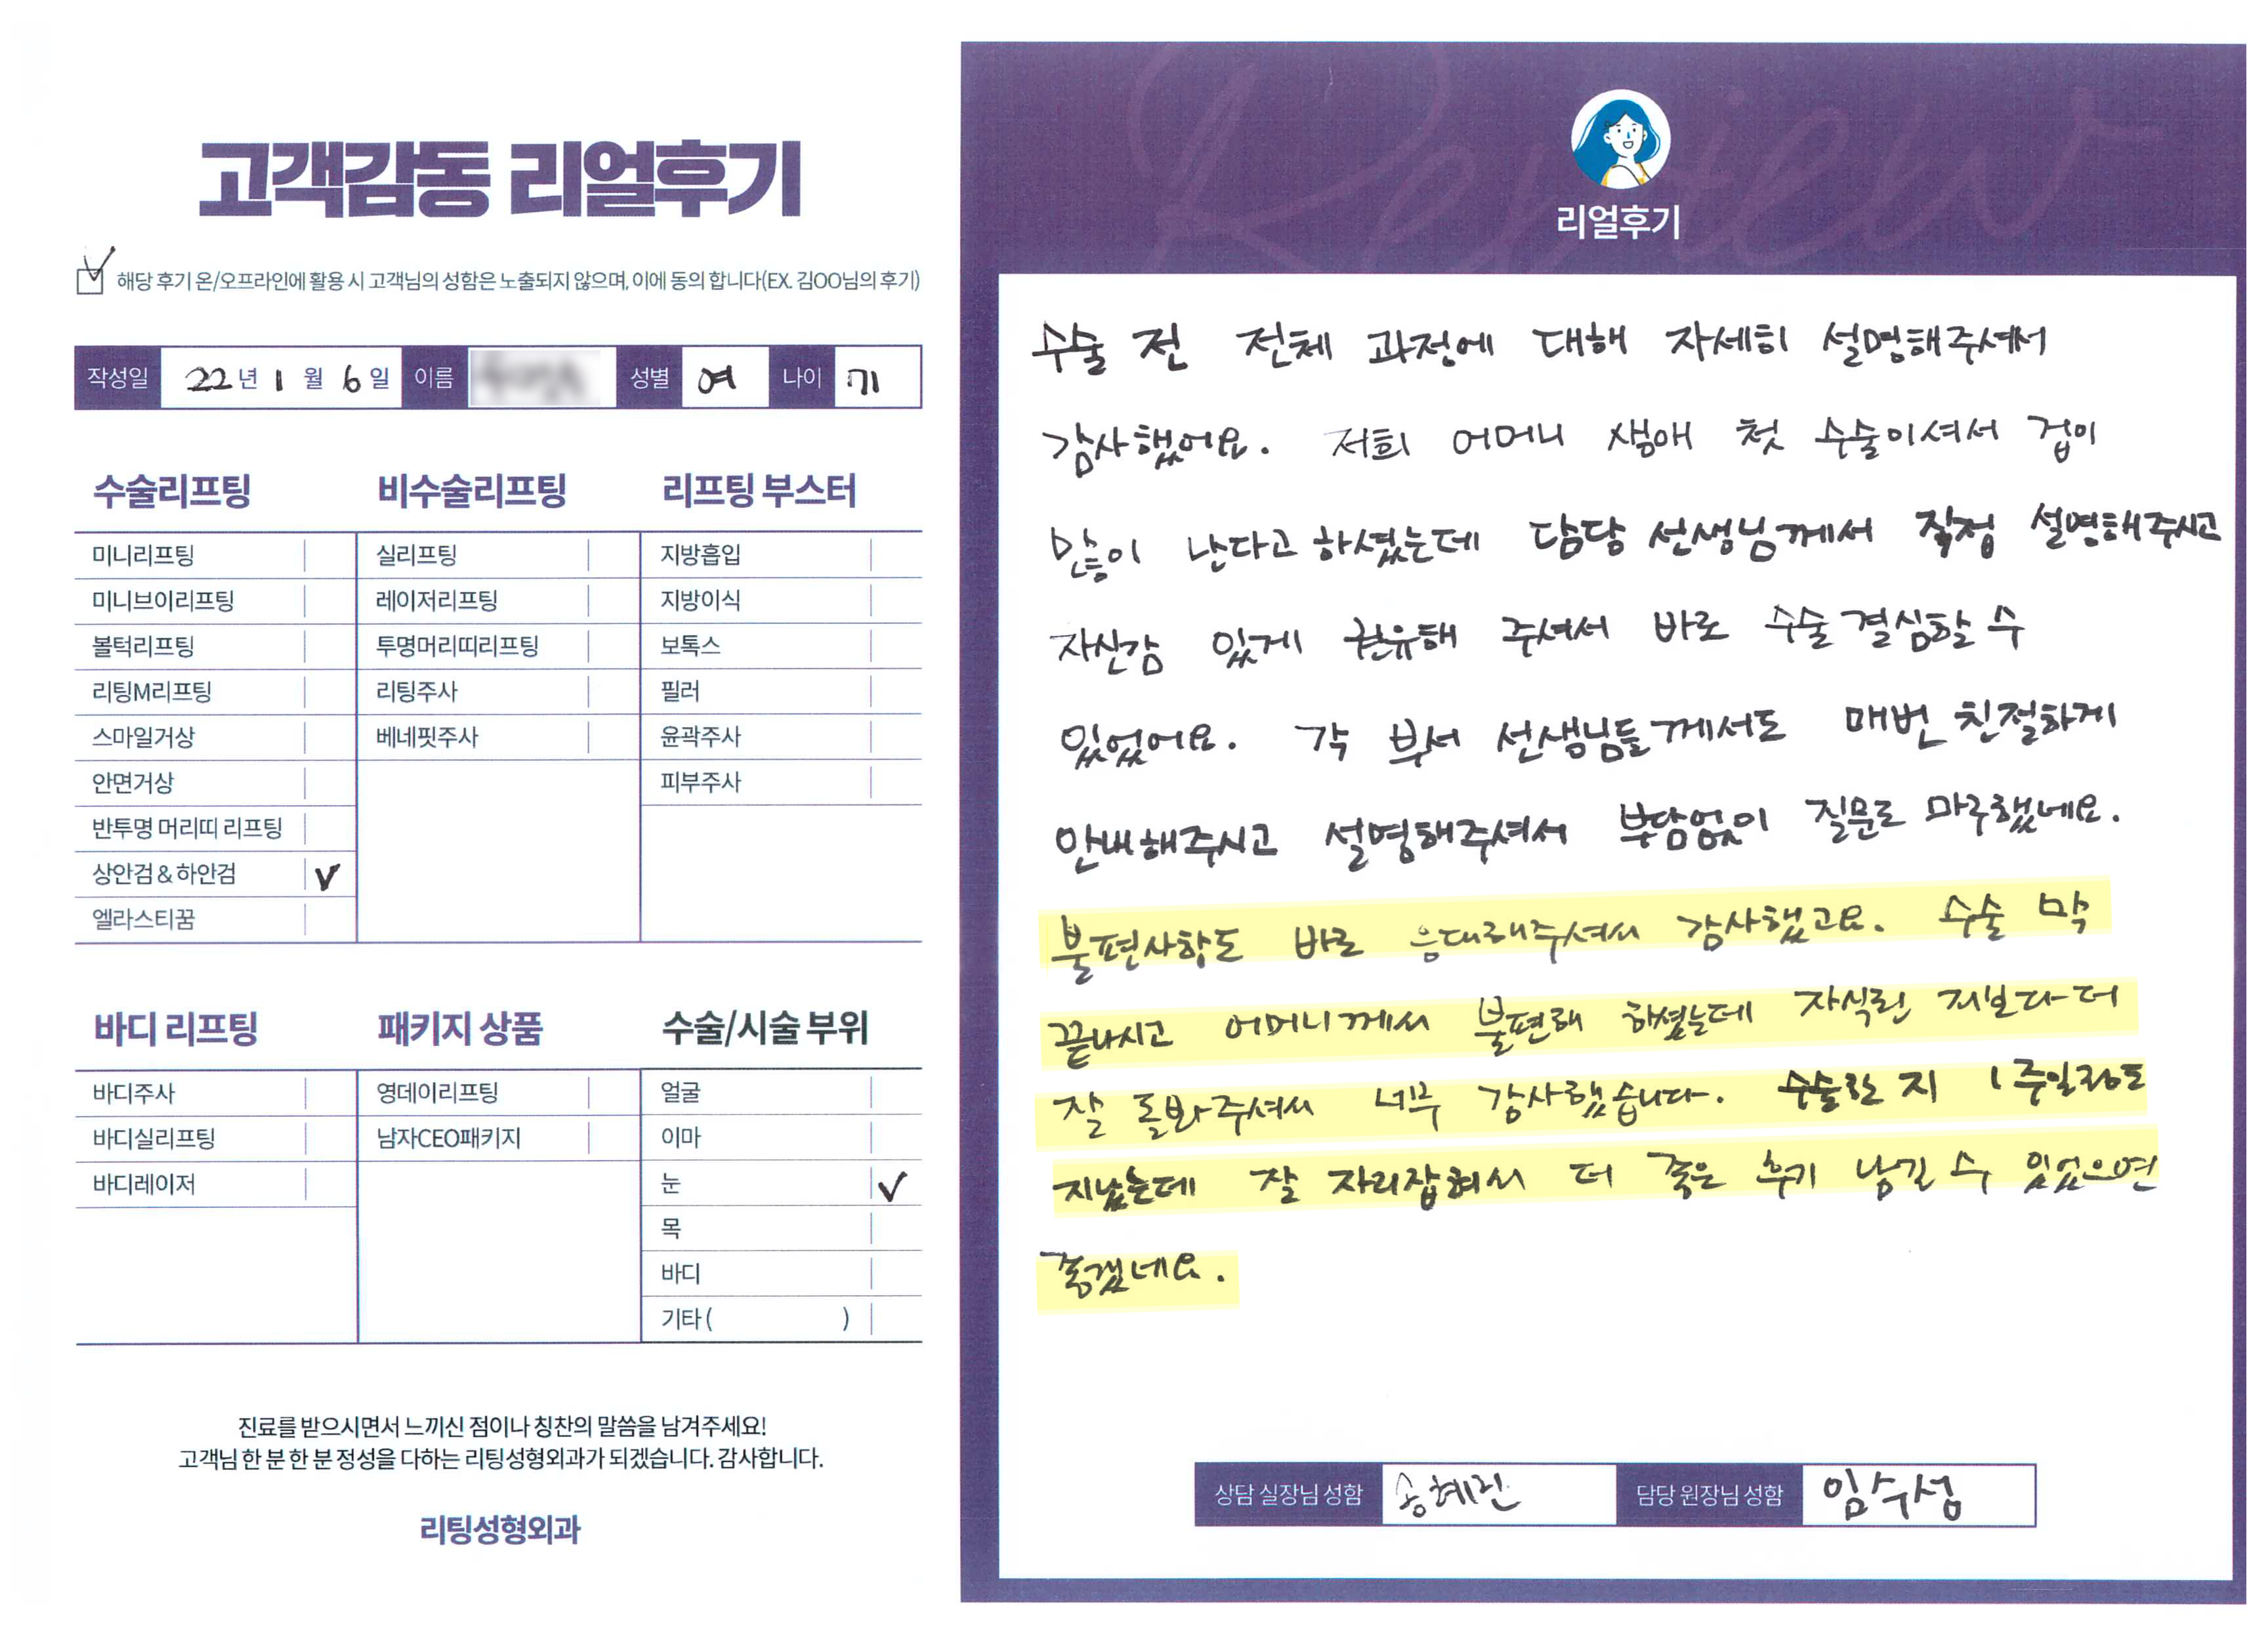 고객감동 리얼후기
해당 후기 온/오프라인에 활용 시 고객님의 성함은 노출되지 않으며, 이에 동의 합니다(EX. 김OO님의 후기)
작성일 22년 1월 6일 이름 성별 여 나이 71
수술리프팅
미니리프팅
미니브이리프팅
볼턱리프팅
리팅M리프팅
스마일거상
안면거상
반투명 머리띠 리프팅
상안검 & 하안검 V
엘라스티꿈
비수술리프팅
실리프팅
레이저리프팅
투명머리띠리프팅
리팅주사
베네핏주사
리프팅 부스터
지방흡입
지방이식
보톡스
필러
윤곽주사
피부주사
바디 리프팅
바디주사
바디실리프팅
바디레이저
패키지 상품
영데이리프팅
남자CEO패키지
수술/시술 부위
얼굴
이마
눈 V
목
바디
기타 ( )
진료를 받으시면서 느끼신 점이나 칭찬의 말씀을 남겨주세요!
고객님 한 분 한 분 정성을 다하는 리팅성형외과가 되겠습니다. 감사합니다.
리팅성형외과
Review
리얼후기
수술 전 전체 과정에 대해 자세히 설명해주셔서
감사했어요. 저희 어머니 생애 첫 수술이셔서 겁이
많이 난다고 하셨는데 담당 선생님께서 직접 설명해주시고
자신감 있게 권유해 주셔서 바로 수술 결심할 수
있었어요. 각 부서 선생님들께서도 매번 친절하게
안내해주시고 설명해주셔서 부담없이 질문도 마구했네요.
불편사항도 바로 응대해주셔서 감사했고요. 수술 막
끝나시고 어머니께서 불편해 하셨는데 자식된 저보다 더
잘 돌봐주셔서 너무 감사했습니다. 수술한 지 1주일정도
지났는데 잘 자리잡혀서 더 좋은 후기 남길 수 있었으면
좋겠네요.
상담 실장님 성함 송혜린 담당 원장님 성함 임수성